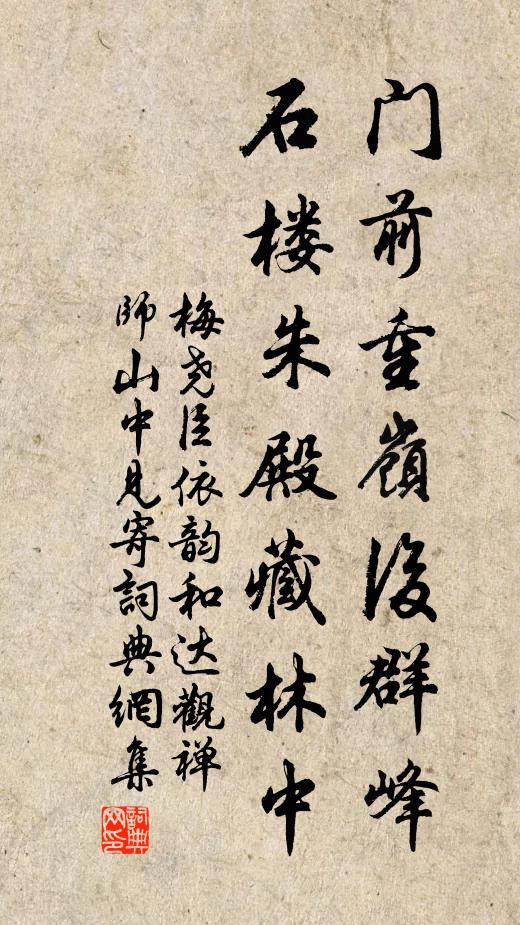 门前重嶺後群峰
石楼朱殿藏林中
梅尧臣依韵和达觀禅
師山中見寄詞典網集
詞典
网印